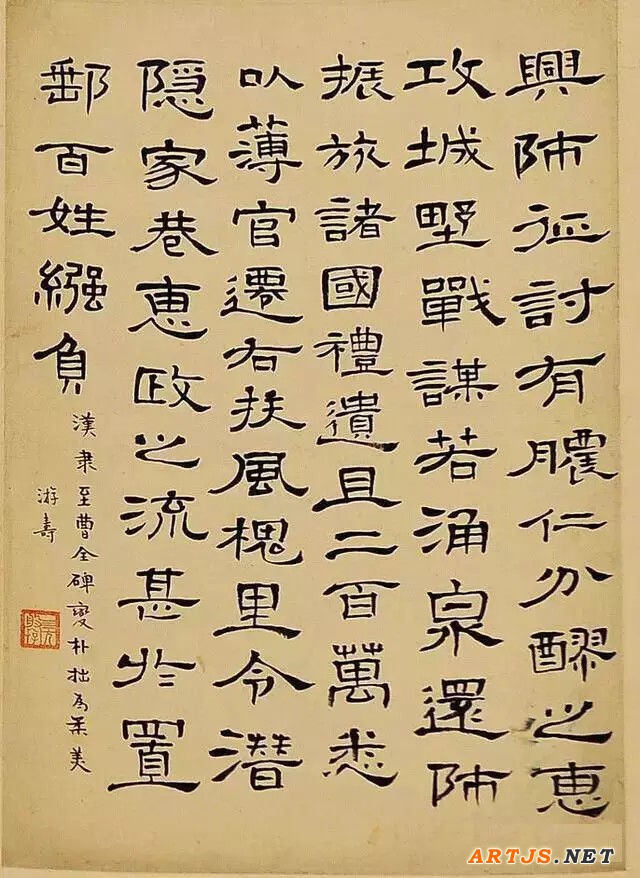 興師征討有膿仁分醪之惠
攻城墅戰謀若涌泉還師
振旅諸國禮遺且二百萬悉
以薄官遷右扶風槐里令潛
隱家巷惠政之流甚於置
郵百姓繦負
漢隸至曹全碑變朴拙為柔美
游壽
ARTJS.NET